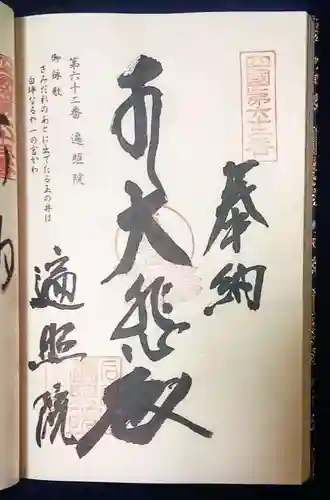 四國第六十二番
奉納
大悲殿
第六十二番 遍照院
御詠歌
さみだれのあとに出でたる玉の井は
白坪なるや一の宮かわ
遍照院